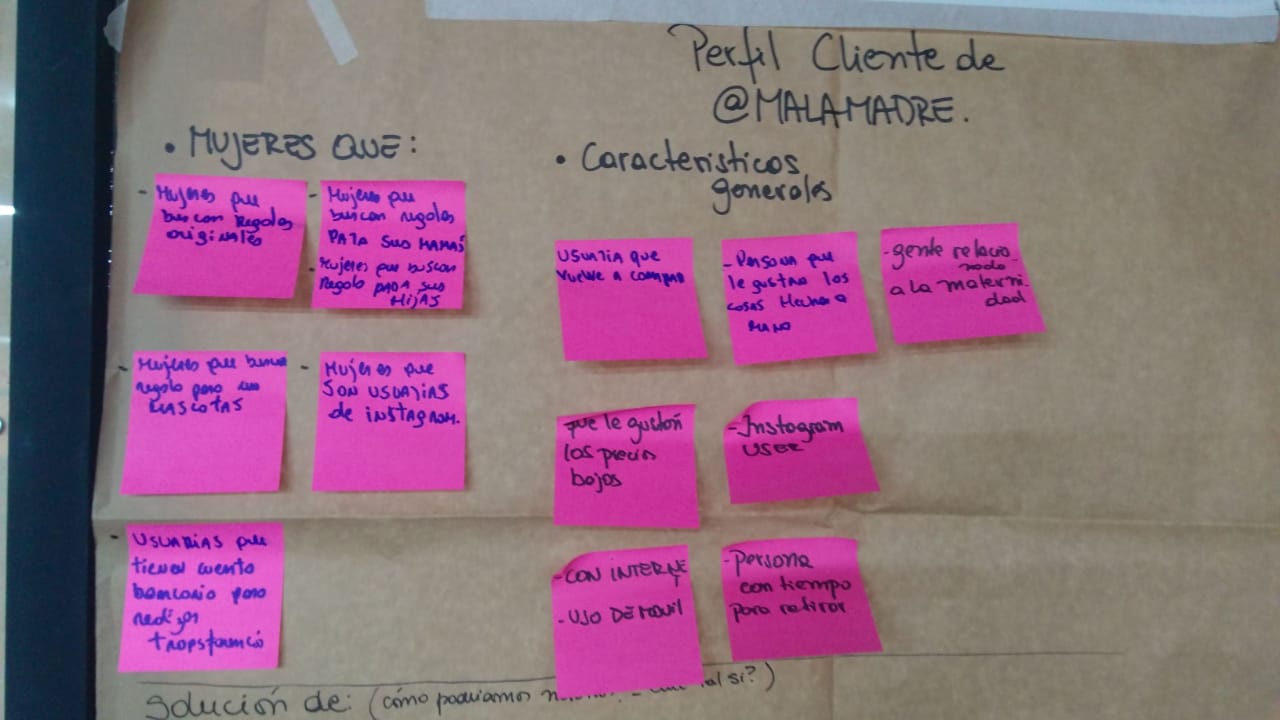 Perfil Cliente de
@MALAMADRE.
• MUJERES QUE:
- Mujeres que
buscan Regalos
originales
- Mujeres que
buscan regalos
PARA SUS MAMÁS
- Mujeres que buscan
Regalo PARA sus
HIJAS
- Mujeres que busca
regalo para sus
MASCOTAS
- Mujeres que
SON USUARIAS
de instagram.
- USUARIAS que
tienen cuenta
bancaria para
realizar
• Caracteristicas
generales
USUARIA que
Vuelve a comprar
- Persona que
le gustan las
cosas Hechas a
MANO
- gente relacio
nada
a la materni-
dad
que le gustan
los precios
bajos
- Instagram
USER
- CON INTERNET
- USO DE MOVIL
- Persona
con tiempo
para retirar
Solución de: (cómo podriamos si?)